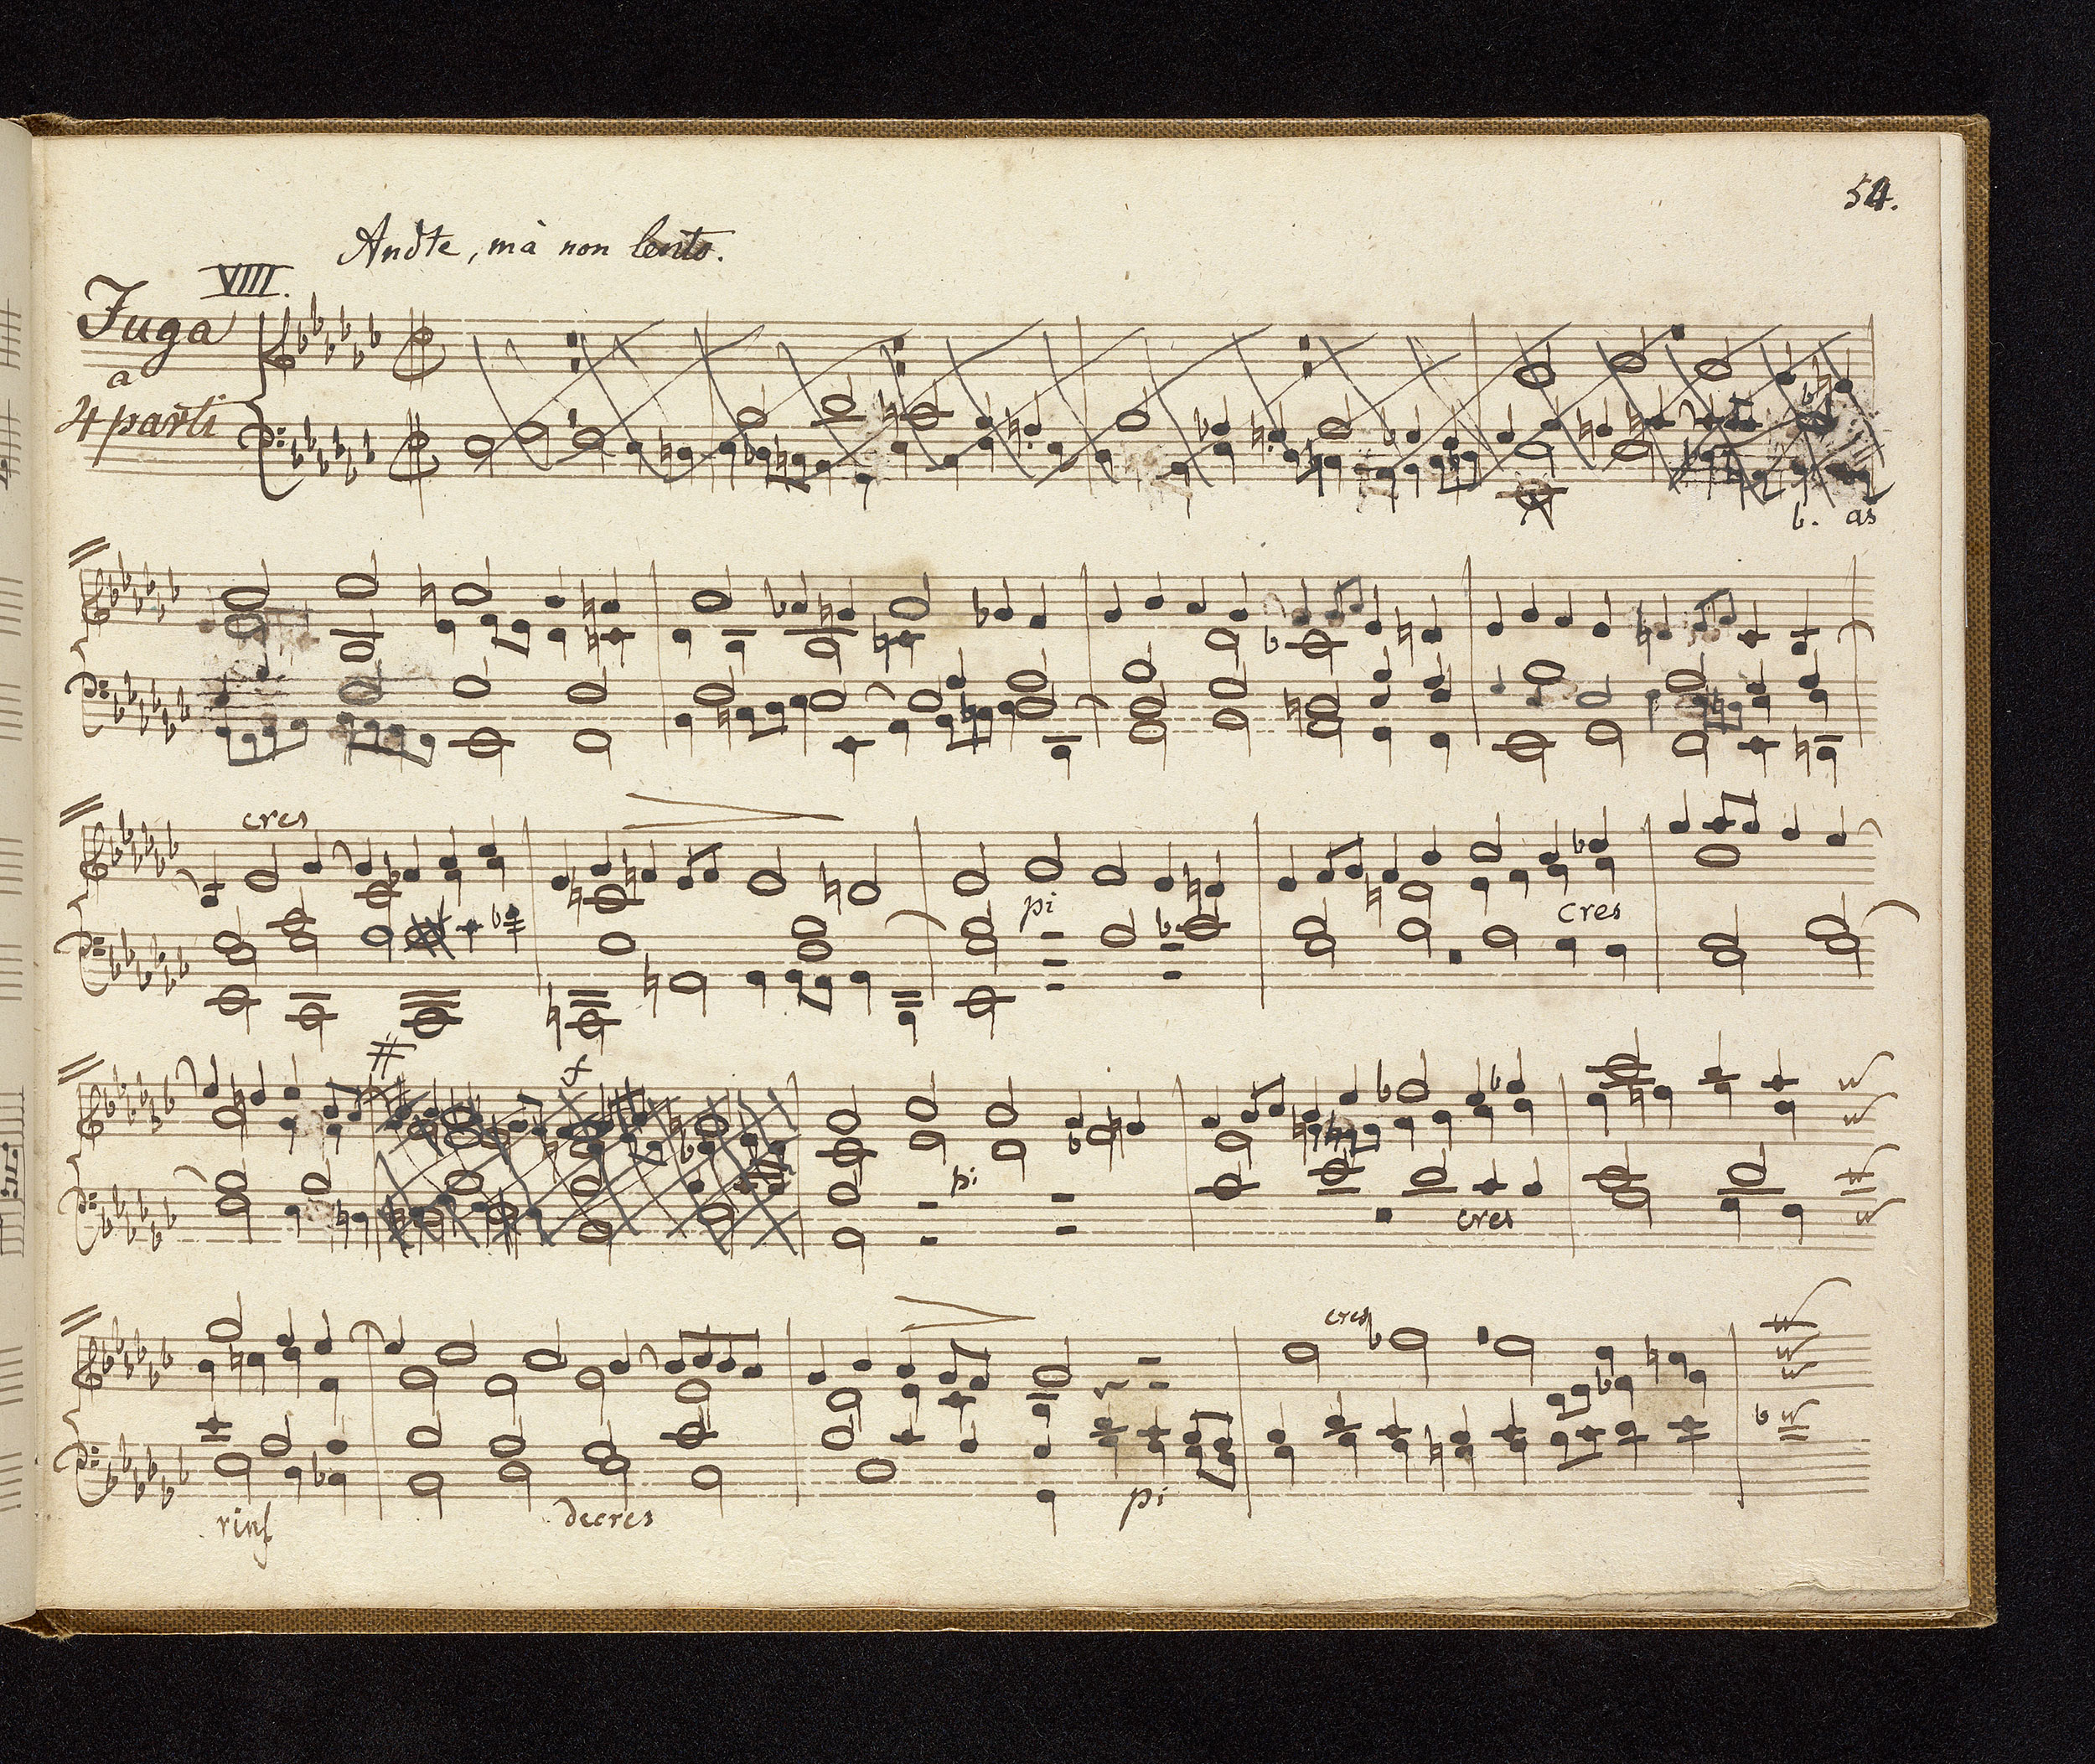 54.
Andte, mà non lento.
VIII.
Fuga
a
4 parti
b. as
cres
pi
cres
pi:
cres
cres
rinf
decres
pi